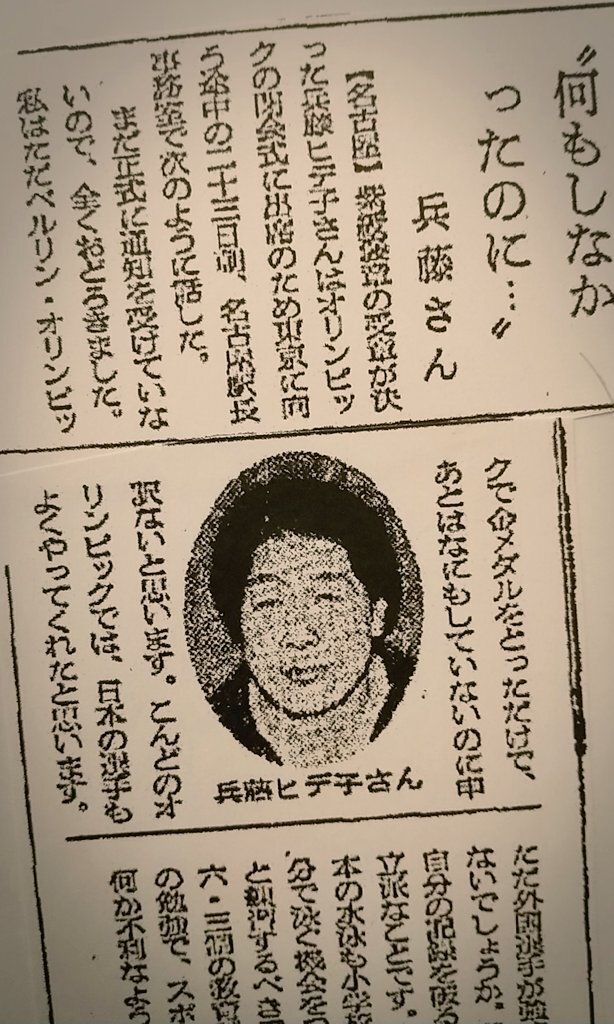 〝何もしなか
ったのに…〟
兵藤さん
【名古屋】紫綬褒章の受章が決
った兵藤ヒデ子さんはオリンピッ
クの閉会式に出席のため東京に向
う途中の二十三日朝、名古屋駅長
事務室で次のように話した。
まだ正式に通知を受けていな
いので、全くおどろきました。
私はただベルリン・オリンピッ
クで金メダルをとっただけで、
あとはなにもしていないのに申
訳ないと思います。こんどのオ
リンピックでは、日本の選手も
よくやってくれたと思います。
兵藤ヒデ子さん
ただ外国選手が
ないでしょうか。
自分の記録を破る
立派なことです。
本の水泳も小学校
分で泳ぐ機会を
と
六・三制の
の勉強で、スポ
何か不利なよう